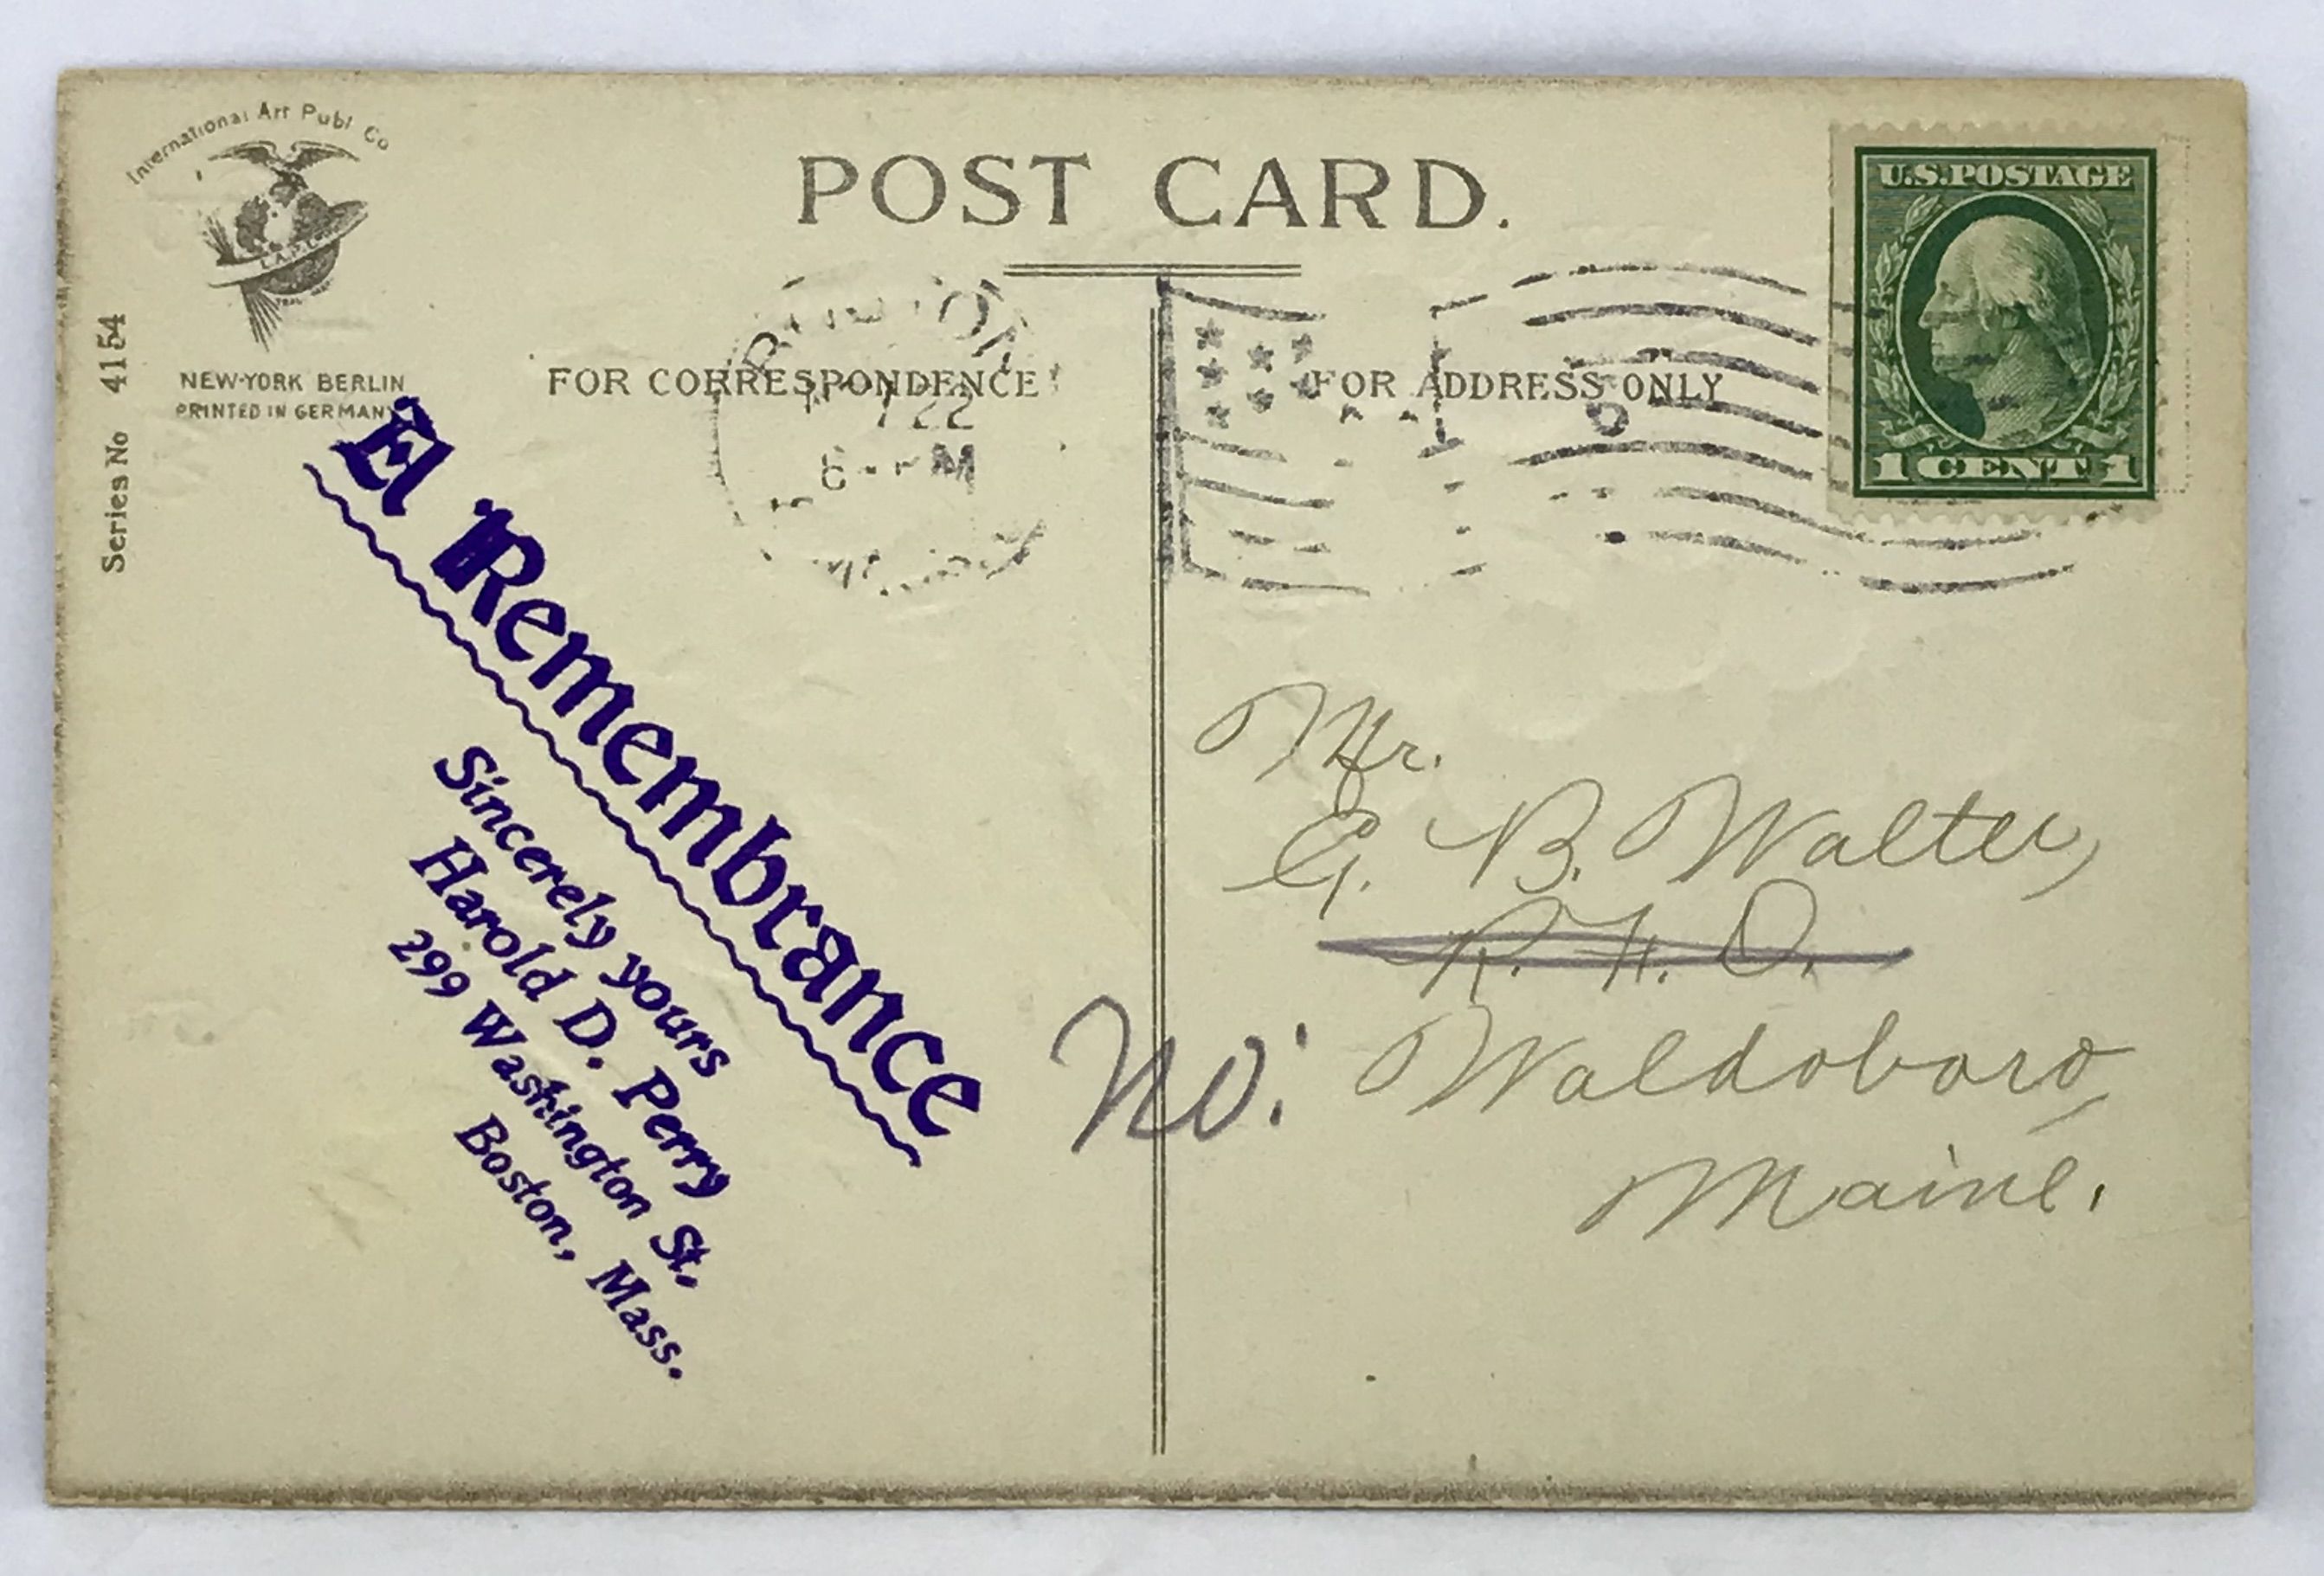 International Art Publ Co
NEW-YORK BERLIN
PRINTED IN GERMANY
Series No 4154
POST CARD.
FOR CORRESPONDENCE
FOR ADDRESS ONLY
U.S.POSTAGE
1 CENT 1
22
El Remembrance
Sincerely yours
Harold D. Perry
299 Washington St.
Boston, Mass.
Mr.
E. B. Walter,
R. F. D.
No: Waldoboro,
Maine.